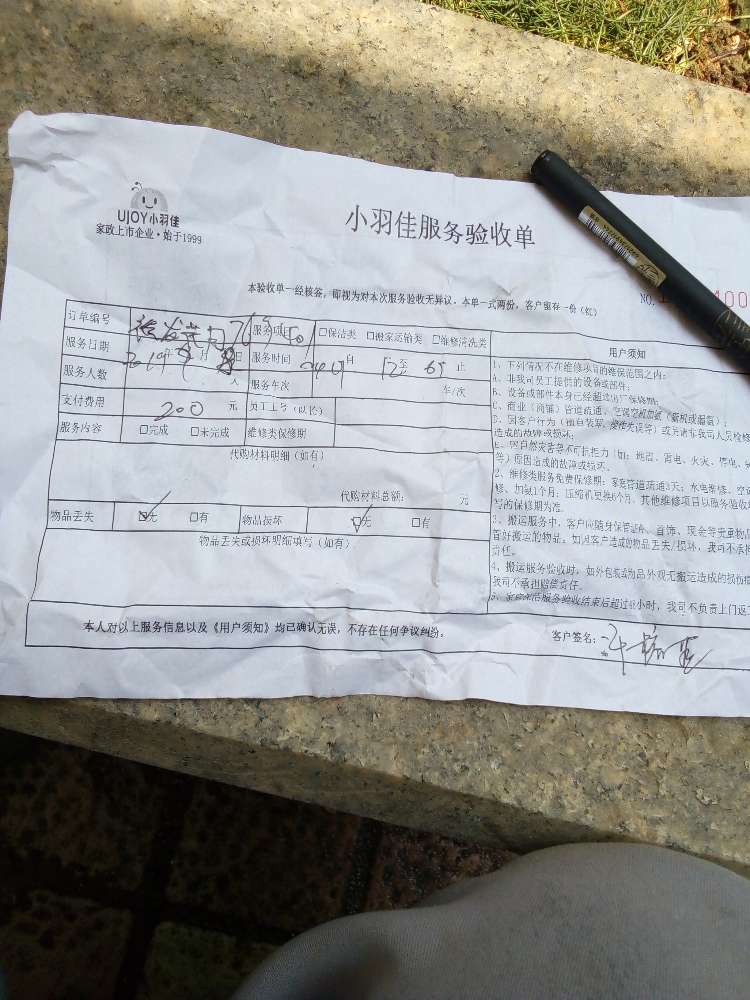 UJOY小羽佳
家政上市企业·始于1999
小羽佳服务验收单
本验收单一经核签，即视为对本次服务验收无异议。本单一式两份，客户留存一份（红）
NO.
订单编号
服务项目 □保洁类 □搬家运输类 □维修清洗类
服务日期 2019年 月 日 服务时间 自 至 止
服务人数 人 服务车次 车/次
支付费用 200 元 员工工号（以长）
服务内容 □完成 □未完成 维修类保修期
代购材料明细（如有）
代购材料总额： 元
物品丢失 □无 □有 物品损坏 □无 □有
物品丢失或损坏明细填写（如有）
用户须知
1、下列情况不在维修项目的维保范围之内：
A、非我司员工提供的设备或部件。
B、设备或部件本身已经超过原厂保修期；
C、商业（商铺）管道疏通、空调空机加氨（新机或漏氨）；
造成的故障或损坏；
E、因自然灾害等不可抗拒力（如：地震、雷电、火灾、停电、
等）原因造成的故障或损坏。
2、维修类服务免费保修期：家庭管道疏通3天；水电维修、空
修、加氨1个月；压缩机更换6个月，其他维修项目以服务验收
写的保修期为准。
3、搬运服务中，客户应随身保管证件、首饰、现金等贵重物品
责任。
4、搬运服务验收时，如外包装或物品外观无搬运造成的损伤
我司不承担赔偿责任。
本人对以上服务信息以及《用户须知》均已确认无误，不存在任何争议纠纷。
客户签名：